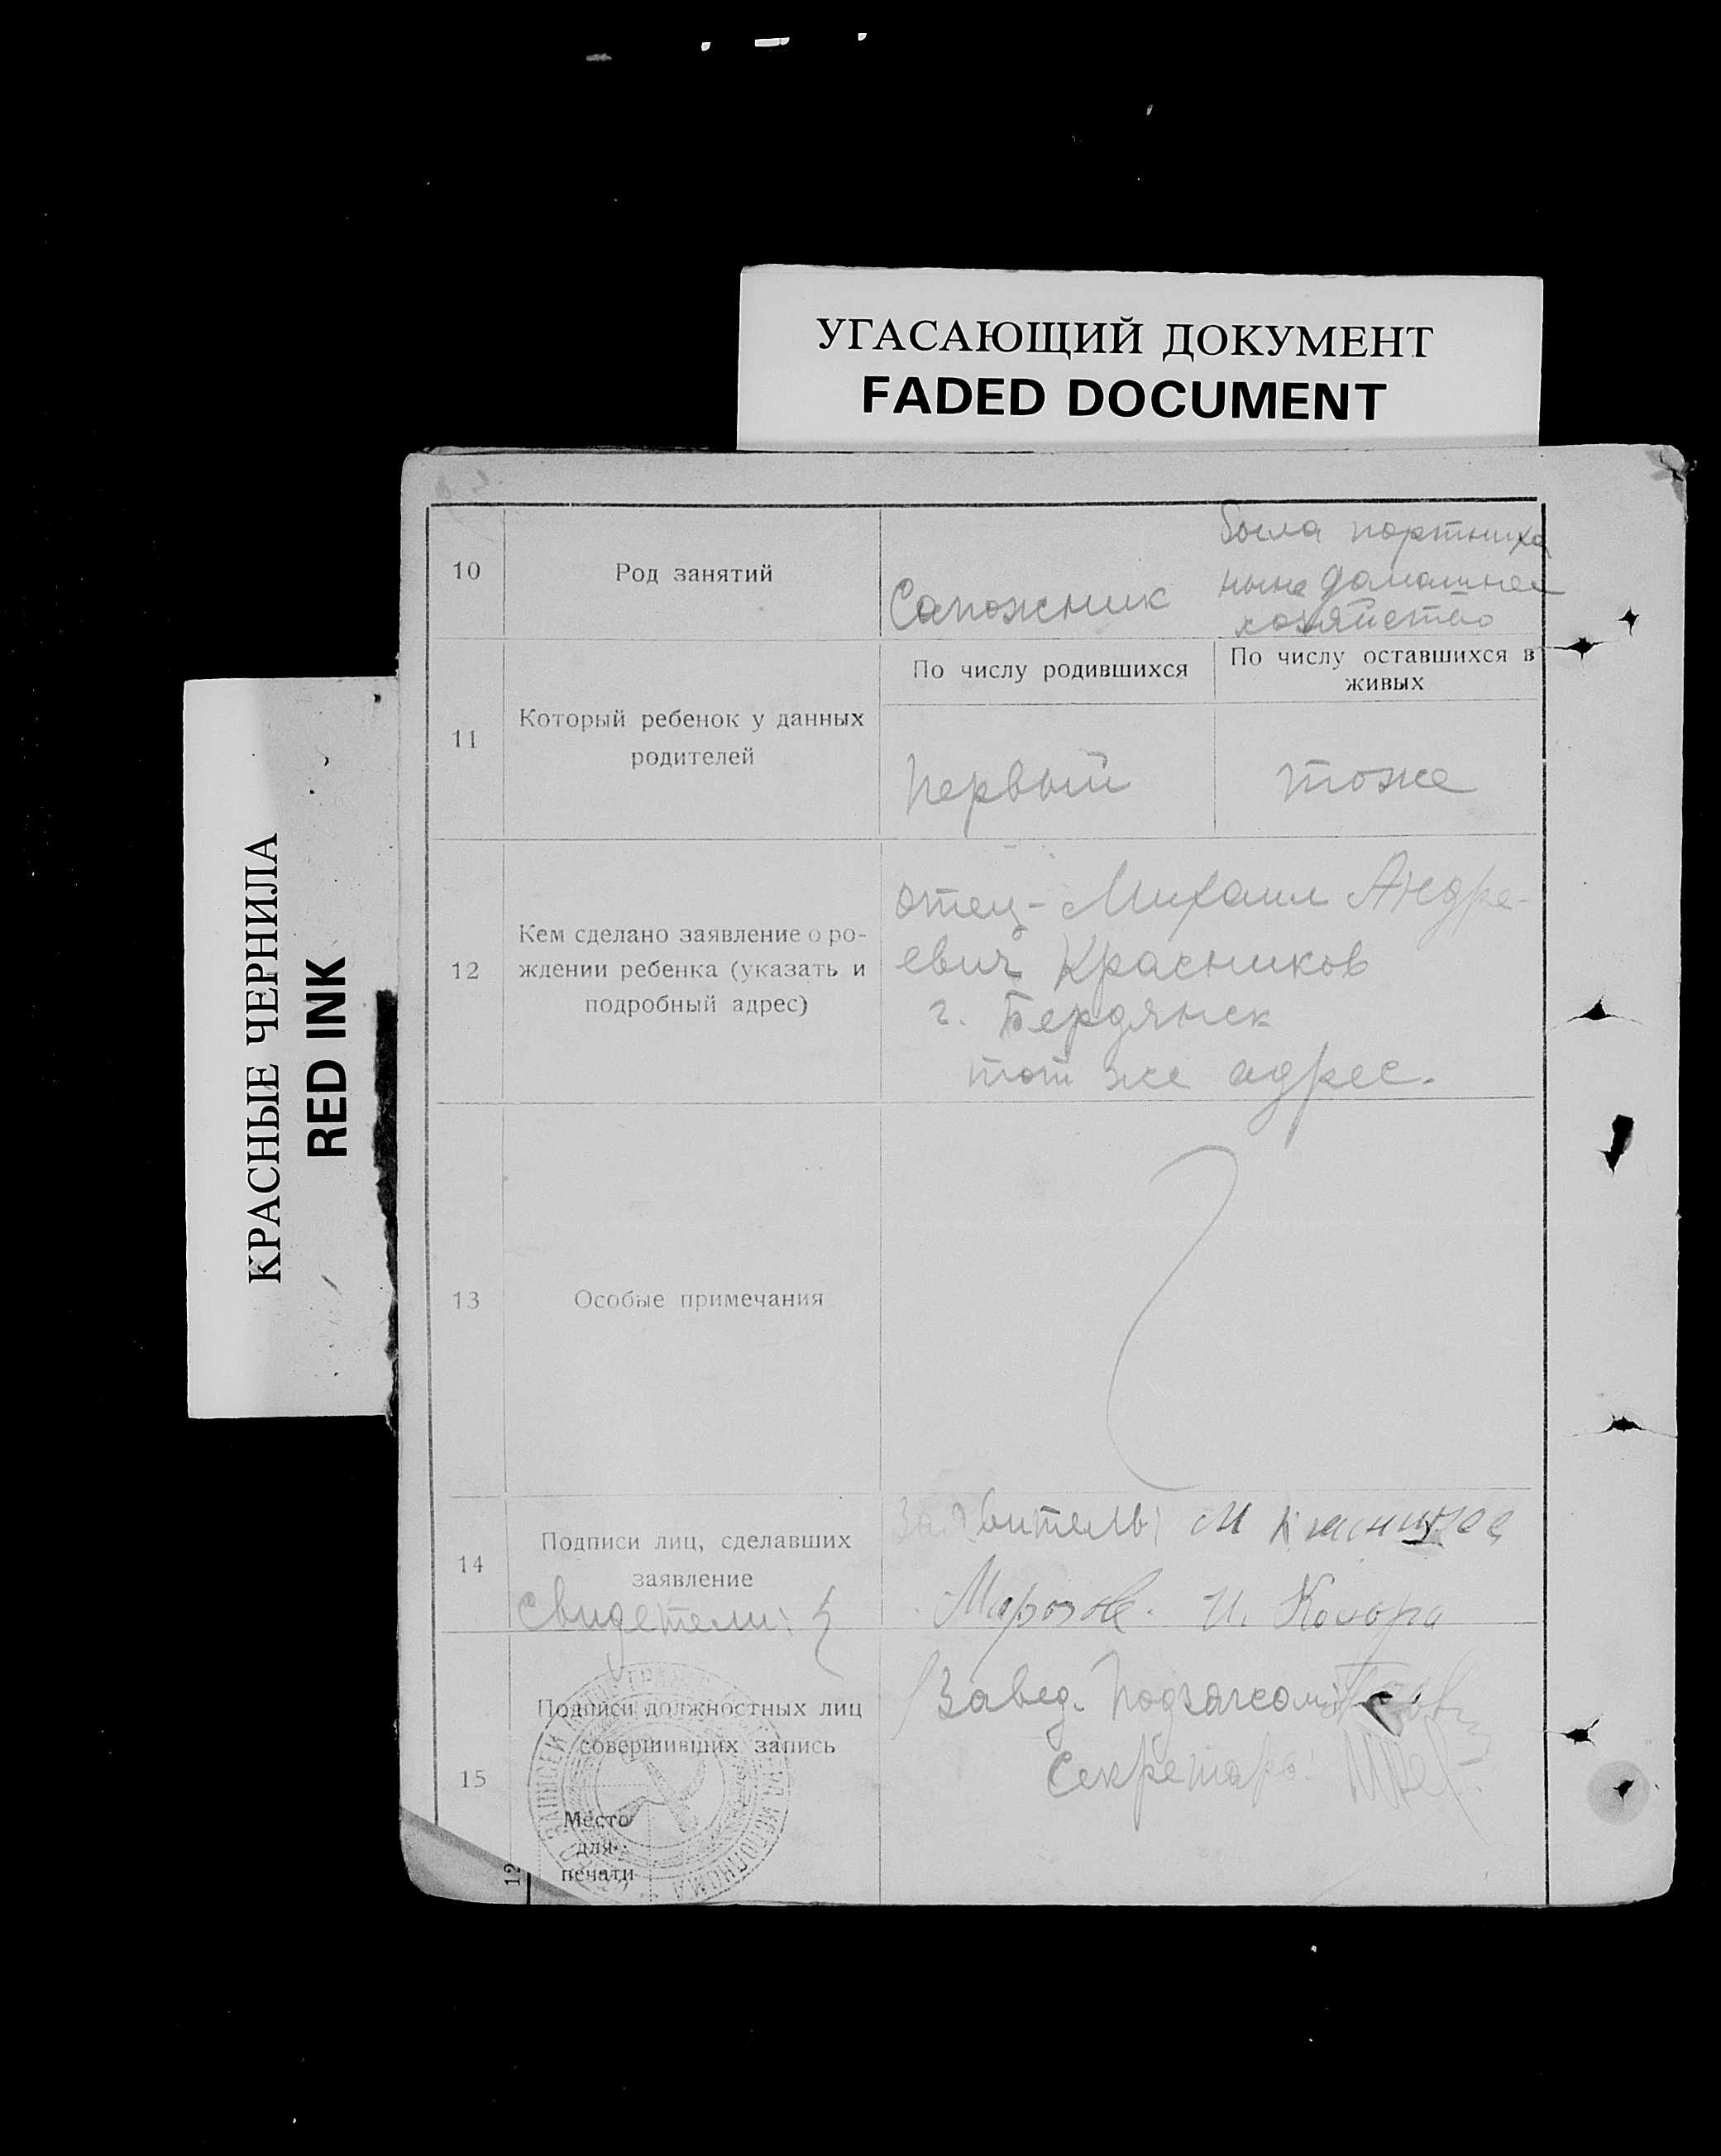 УГАСАЮЩИЙ ДОКУМЕНТ
FADED DOCUMENT
КРАСНЫЕ ЧЕРНИЛА
RED INK
10
Род занятий
Сапожник
была портниха
ныне домашнее
хозяйство
11
Который ребенок у данных
родителей
По числу родившихся
По числу оставшихся в
живых
Первый
тоже
12
Кем сделано заявление о ро-
ждении ребенка (указать и
подробный адрес)
отец - Михаил Андре-
евич Красников
г. Бердянск
тот же адрес.
13
Особые примечания
14
Подписи лиц, сделавших
заявление
Свидетели:
Заявитель: М
И.
15
Подписи должностных лиц
совершивших запись
Место
для
печати
Завед.
Секретарь:
12